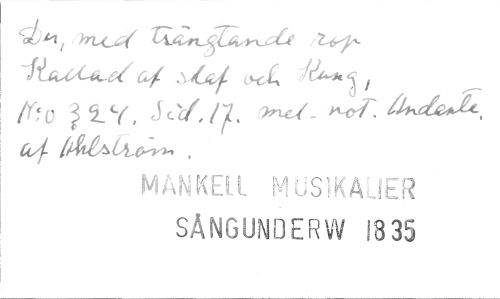 Du, med trängtande rop
Kallad af slaf och Kung,
N:o 324. Sid. 17. mel. not. Andante.
af Ahlström.
MANKELL MUSIKALIER
SÅNGUNDERW 1835